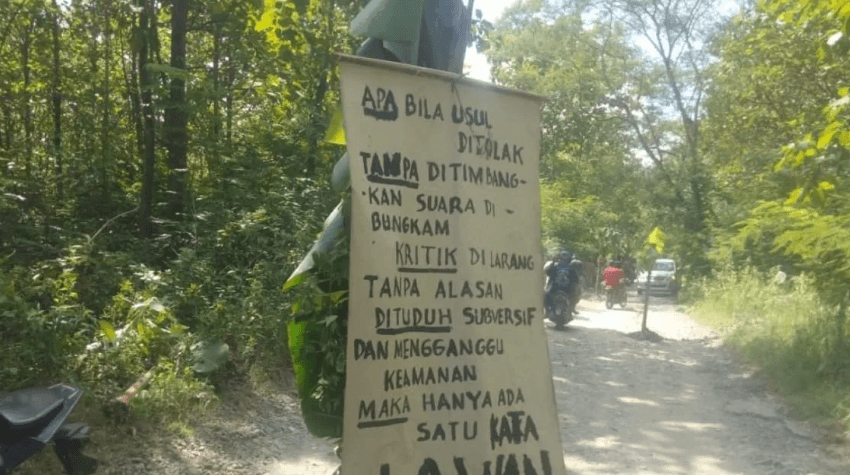 APA BILA USUL
DITOLAK
TANPA DITIMBANG-
-KAN SUARA DI-
BUNGKAM
KRITIK DI LARANG
TANPA ALASAN
DITUDUH SUBVERSIF
DAN MENGGANGGU
KEAMANAN
MAKA HANYA ADA
SATU KATA
LAWAN